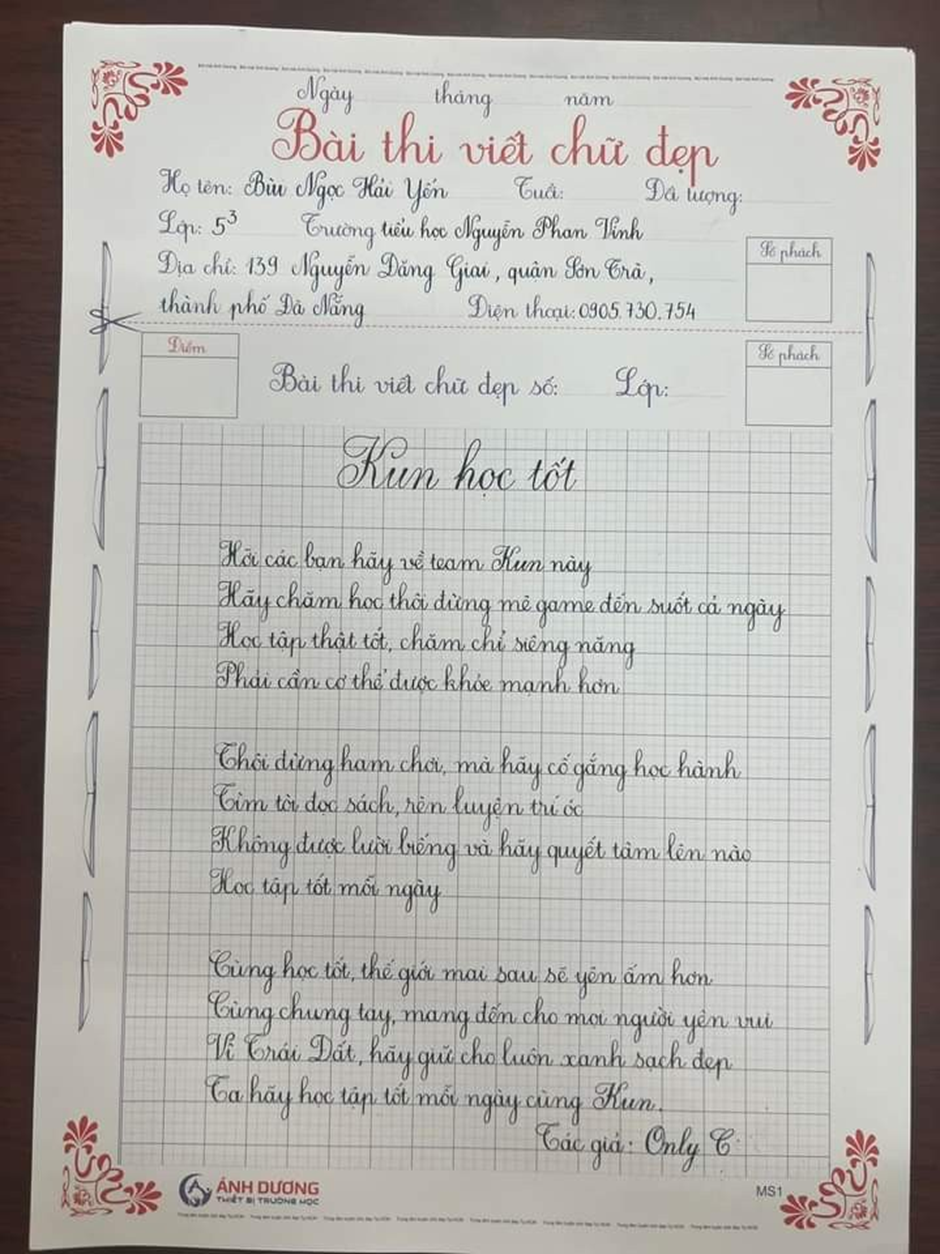 Ngày tháng năm
Bài thi viết chữ đẹp
Họ tên: Bùi Ngọc Hải Yến Tuổi: Dã tượng:
Lớp: 5³ Trường tiểu học Nguyễn Phan Vinh
Địa chỉ: 139 Nguyễn Đăng Giai, quận Sơn Trà,
thành phố Đà Nẵng Điện thoại: 0905.730.754
Số phách
Điểm
Bài thi viết chữ đẹp số: Lớp:
Số phách
Kun học tốt
Hỡi các bạn hãy về team Kun này
Hãy chăm học thôi đừng mê game đến suốt cả ngày
Học tập thật tốt, chăm chỉ siêng năng
Phải cần cơ thể được khỏe mạnh hơn
Thôi đừng ham chơi, mà hãy cố gắng học hành
Tìm tòi đọc sách, rèn luyện trí óc
Không được lười biếng và hãy quyết tâm lên nào
Học tập tốt mỗi ngày
Cùng học tốt, thế giới mai sau sẽ yên ấm hơn
Cùng chung tay, mang đến cho mọi người yên vui
Vì Trái Đất, hãy giữ cho luôn xanh sạch đẹp
Ta hãy học tập tốt mỗi ngày cùng Kun.
Tác giả: Only C
ÁNH DƯƠNG
THIẾT BỊ TRƯỜNG HỌC
MS1